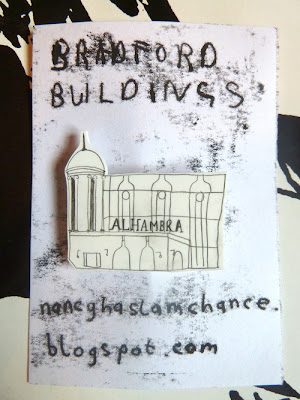 BRADFORD
BUILDINGS
ALHAMBRA
nancyhaslamchance.
blogspot.com